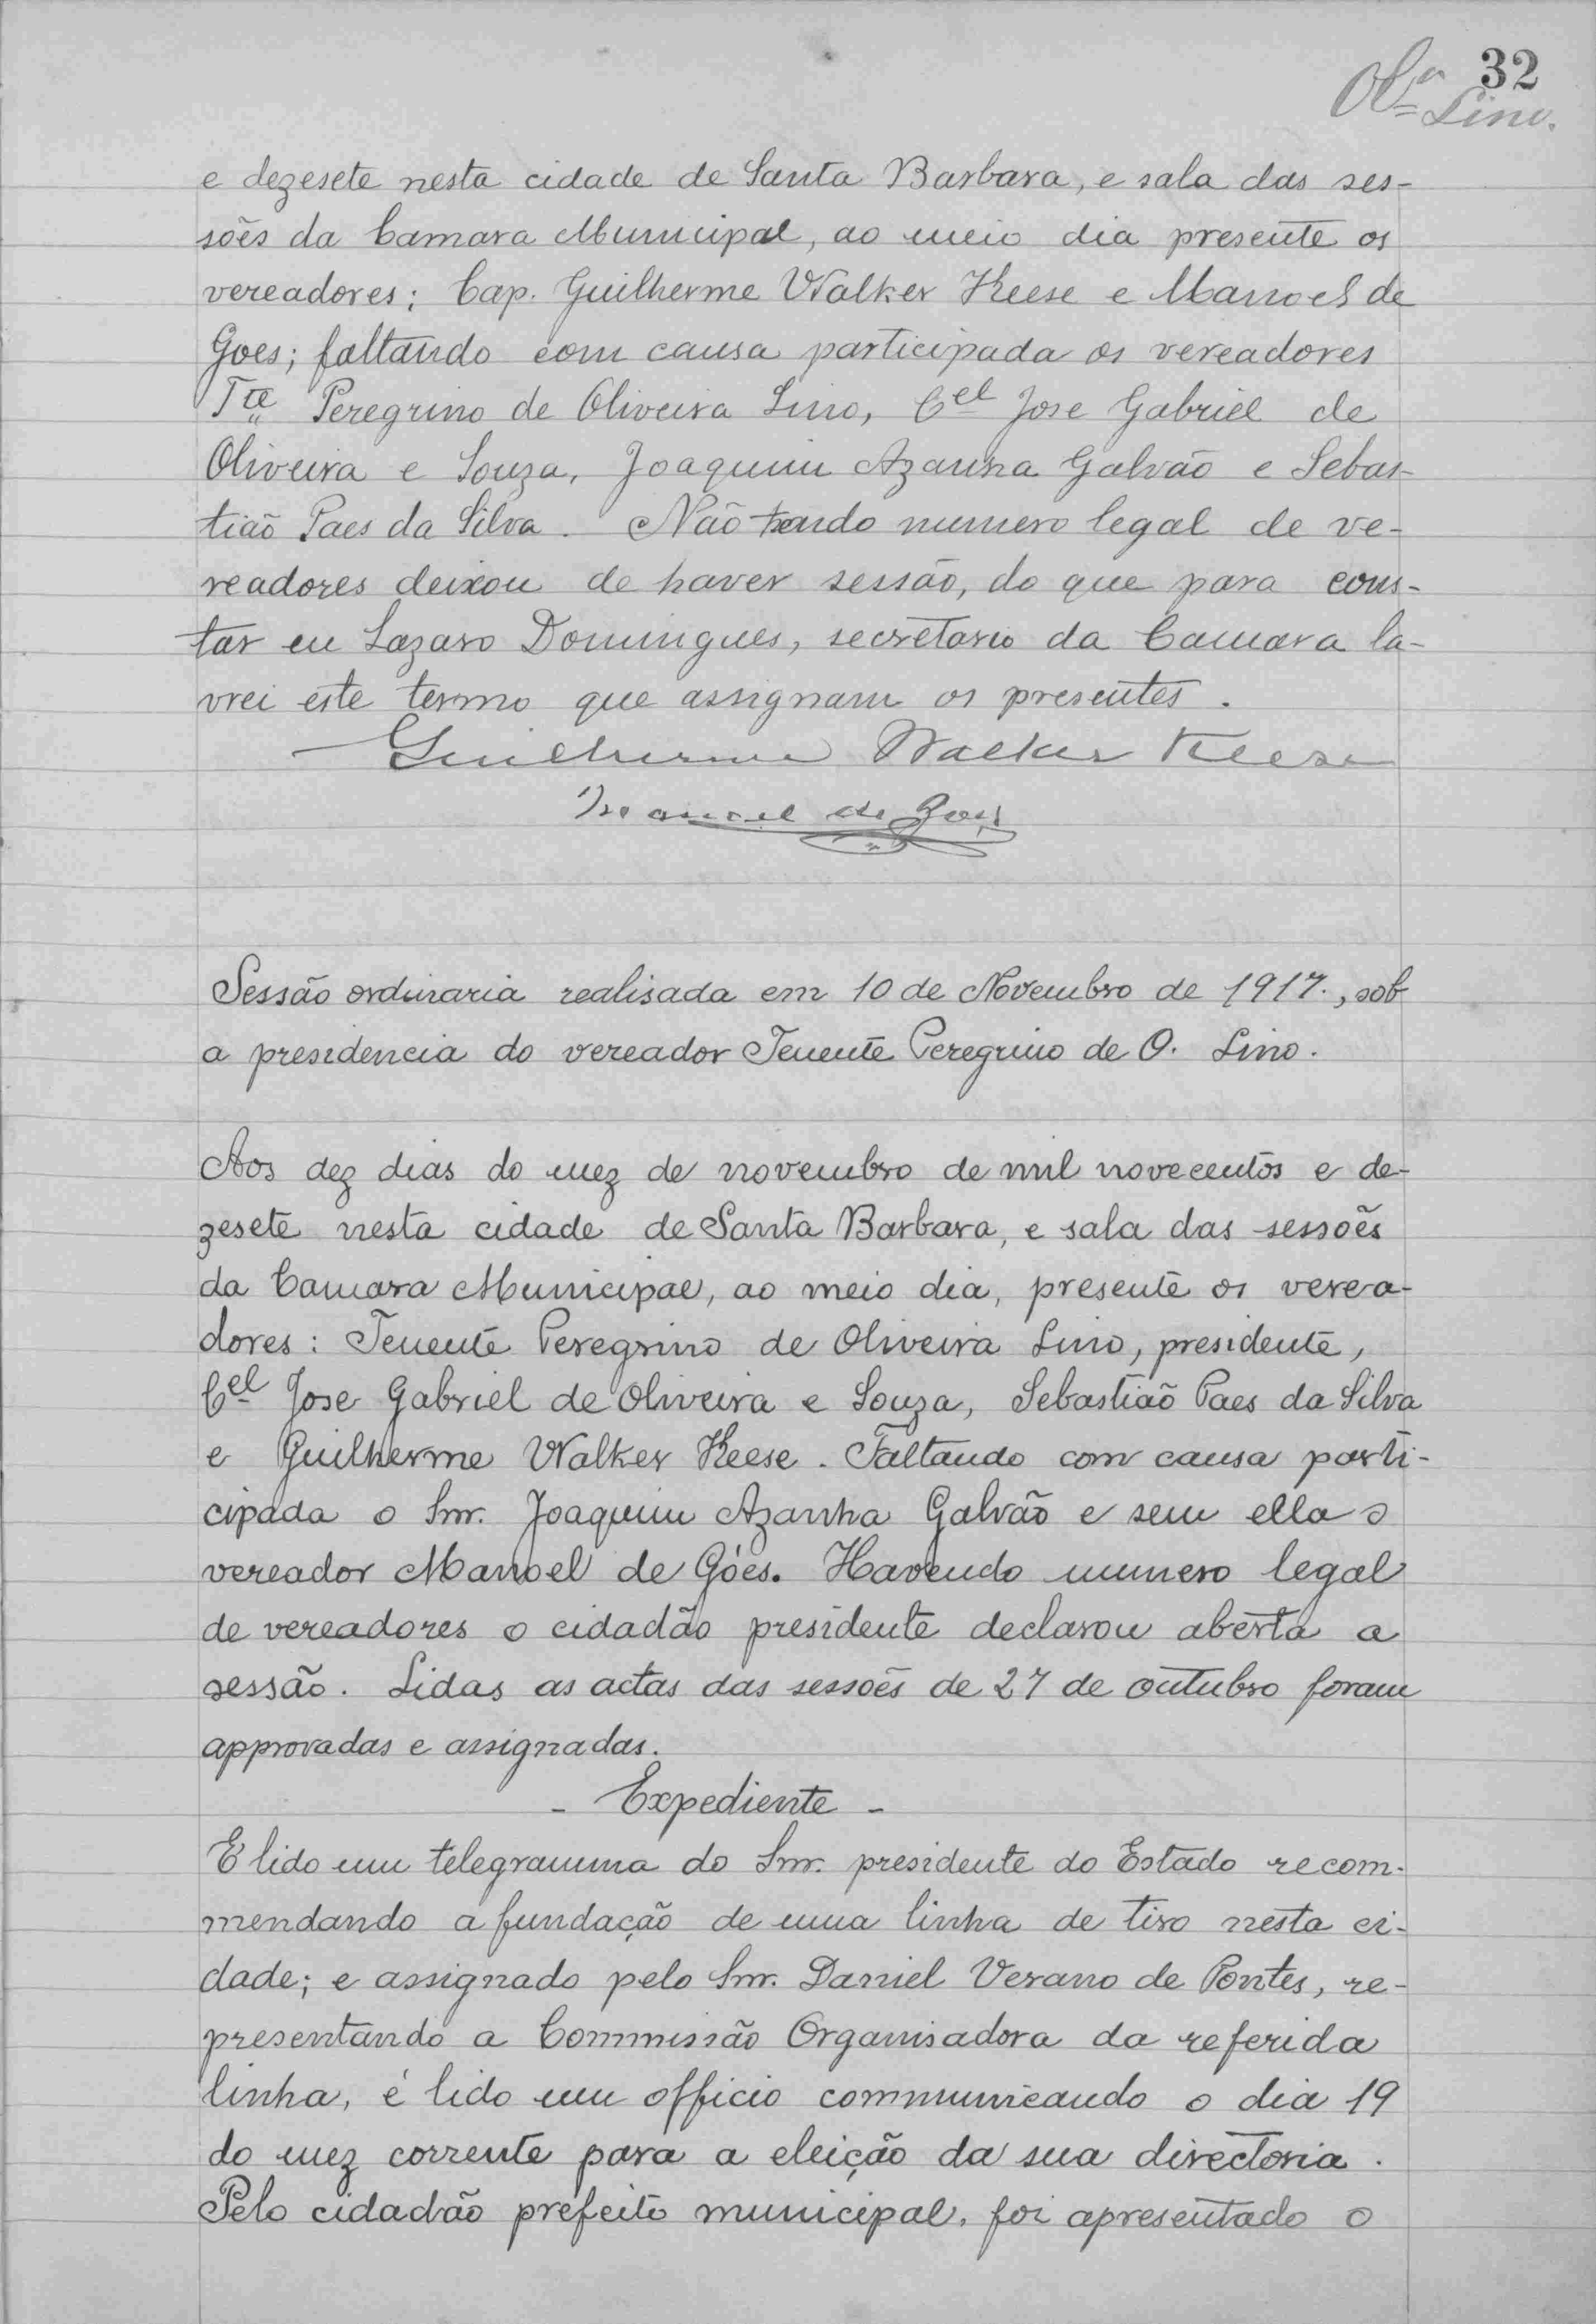 32
Olª Lino.
e dezesete nesta cidade de Santa Barbara, e sala das ses-
sões da Camara Municipal, ao meio dia presente os
vereadores; Cap. Guilherme Walker Keese e Manoel de
Goes; faltando com causa participada os vereadores
Tte Peregrino de Oliveira Lino, Cel Jose Gabriel de
Oliveira e Souza, Joaquim Azanha Galvão e Sebas-
tião Paes da Silva. Não havendo numero legal de ve-
readores deixou de haver sessão, do que para cons-
tar eu Lazaro Domingues, secretario da Camara la-
vrei este termo que assignam os presentes.
Guilherme Walker Keese
Manoel de Goes
Sessão ordinaria realisada em 10 de Novembro de 1917., sob
a presidencia do vereador Tenente Peregrino de O. Lino.
Aos dez dias do mez de novembro de mil novecentos e de-
zesete nesta cidade de Santa Barbara, e sala das sessões
da Camara Municipal, ao meio dia, presente os verea-
dores: Tenente Peregrino de Oliveira Lino, presidente,
Cel Jose Gabriel de Oliveira e Souza, Sebastião Paes da Silva
e Guilherme Walker Keese. Faltando com causa parti-
cipada o Snr. Joaquim Azanha Galvão e sem ella o
vereador Manoel de Góes. Havendo numero legal
de vereadores o cidadão presidente declarou aberta a
sessão. Lidas as actas das sessões de 27 de outubro foram
approvadas e assignadas.
- Expediente -
E lido um telegramma do Snr. presidente do Estado recom-
mendando a fundação de uma linha de tiro nesta ci-
dade; e assignado pelo Snr. Daniel Verano de Pontes, re-
presentando a Commissão Organisadora da referida
linha, é lido um officio communicando o dia 19
do mez corrente para a eleição da sua directoria.
Pelo cidadão prefeito municipal, foi apresentado o